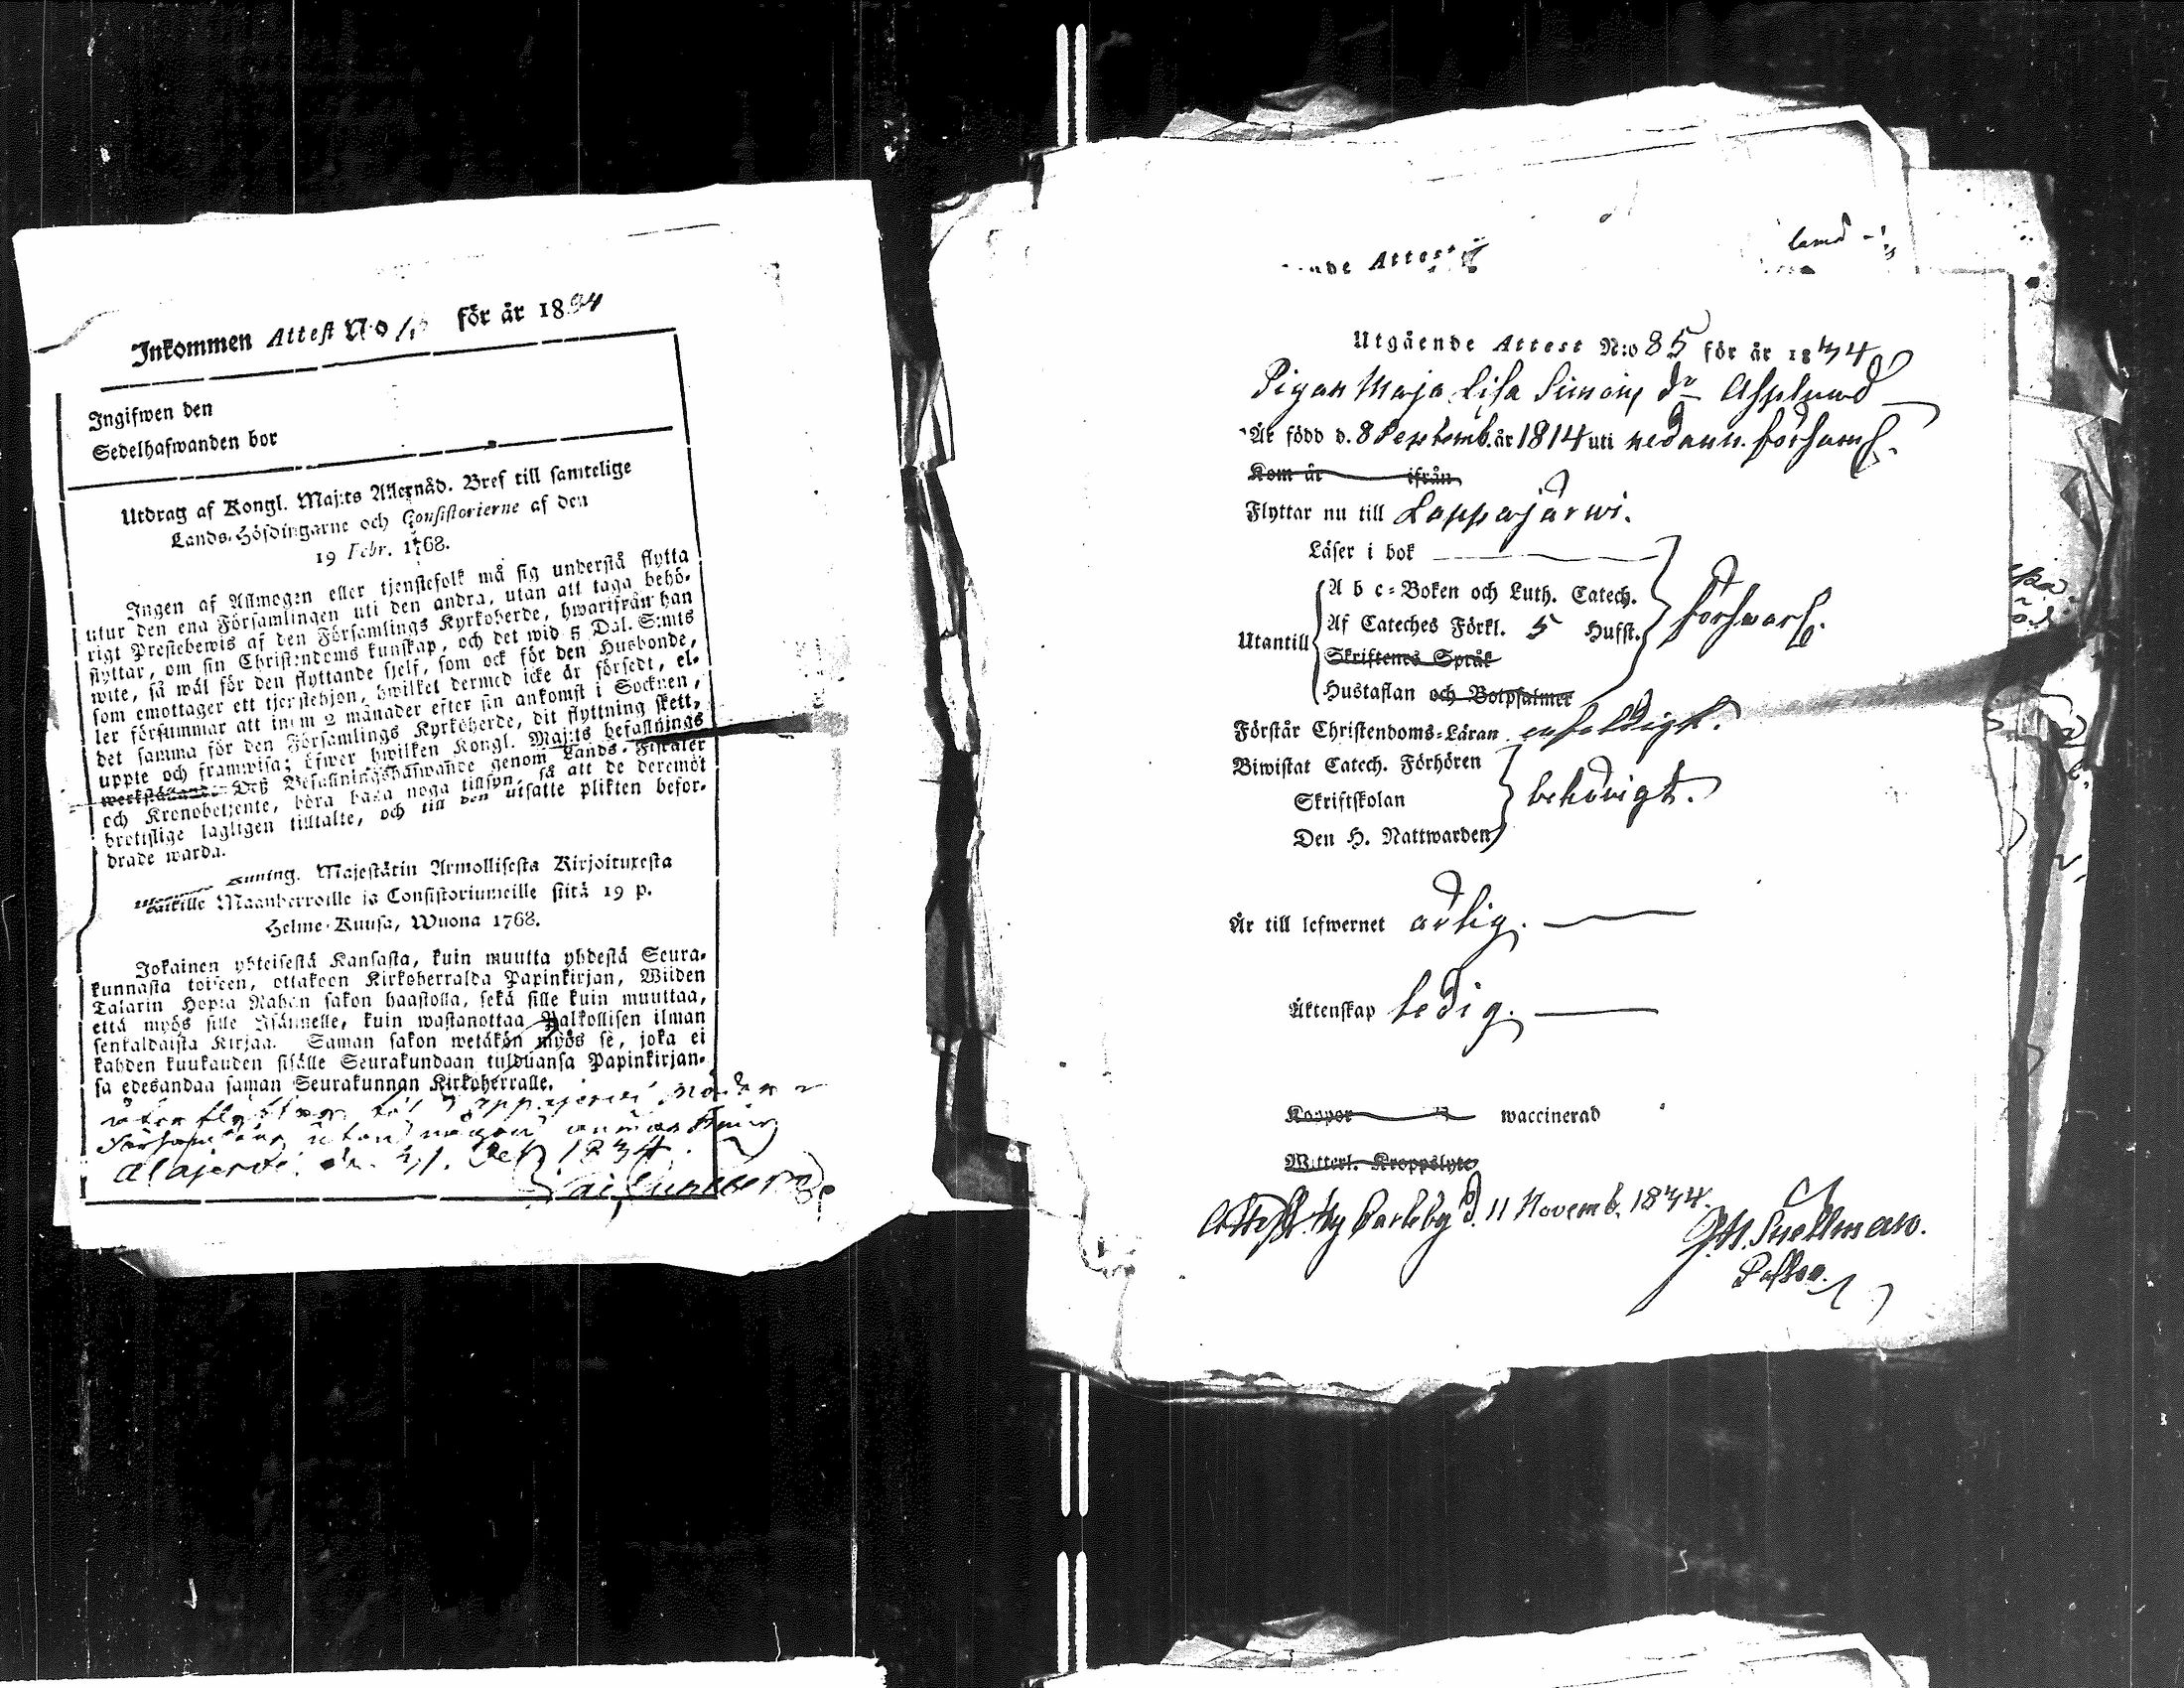 Inkommen Attest N:o för år 1834
Ingifwen den
Sedelhafwanden bor
Utdrag af Kongl. Maj:ts Allernåd. Bref till samtelige
Lands-Höfdingarne och Consistorierne af den
19 Febr. 1768.
Ingen af Allmogen eller tjenstefolk må sig understå flytta
utur den ena Församlingen uti den andra, utan att taga behö-
rigt Prestebewis af den Församlings Kyrkoherde, hwarifrån han
flyttar, om sin Christendoms kunskap, och det wid 5 Dal. S:mts
wite, så wäl för den flyttande sjelf, som ock för den Husbonde,
som emottager ett tjenstehjon, hwilket dermed icke är försedt, el-
ler försummar att inom 2 månader efter sin ankomst i Socknen,
det samma för den Församlings Kyrkoherde, dit flyttning skett,
uppte och framwisa; öfwer hwilken Kongl. Maj:ts befallnings
werkställande Deß Befallningshafwande genom Lands-Fiskaler
och Kronobetjente, böra hafa noga tillsyn, så att de deremot
brottslige lagligen tilltalte, och till den utsatte plikten befor-
drade warda.
Kuning. Majestätin Armollisesta Kirjoituxesta
kaikille Maanherroille ja Consistoriumeille siitä 19 p.
Helme-Kuusa, Wuona 1768.
Jokainen yhteisestä Kansasta, kuin muutta yhdestä Seura-
kunnasta toiseen, ottakoon Kirkoherralda Papinkirjan, Wiiden
Talarin Hopia Rahan sakon haastolla, sekä sille kuin muuttaa,
että myös sille Isännelle, kuin wastanottaa Palkollisen ilman
senkaldaista Kirjaa. Saman sakon wetäkön myös se, joka ei
kahden kuukauden sisälle Seurakundaan tulduansa Papinkirjan-
sa edesandaa saman Seurakunnan Kirkoherralle.
återflyttar till Lappajerwi Moder
Församling utan någon anmärkning
Alajerwi den 31. 1834.
nde Attest
Utgående Attest N:o 85 för år 1834
Pigan Maja Lisa Simons dr Asplund
Är född d. 8 Septemb. år 1814 uti nedann. församl.
Kom år ifrån
Flyttar nu till Lappajärwi.
Läser i bok
A b c-Boken och Luth. Catech.
Utantill Af Cateches Förkl. 5 Hufst. försvarl.
Skriftenes Språk
Hustaflan och Botpsalmer
Förstår Christendoms-Läran enfaldigt.
Biwistat Catech. Förhören
Skriftskolan behörigt.
Den H. Nattwarden
Är till lefwernet ärlig.
Äktenskap ledig.
Koppor waccinerad
Witterl. Kroppslyte
Attest. Ny Carleby d. 11 Novemb. 1834.
Snellman.
Pastor.